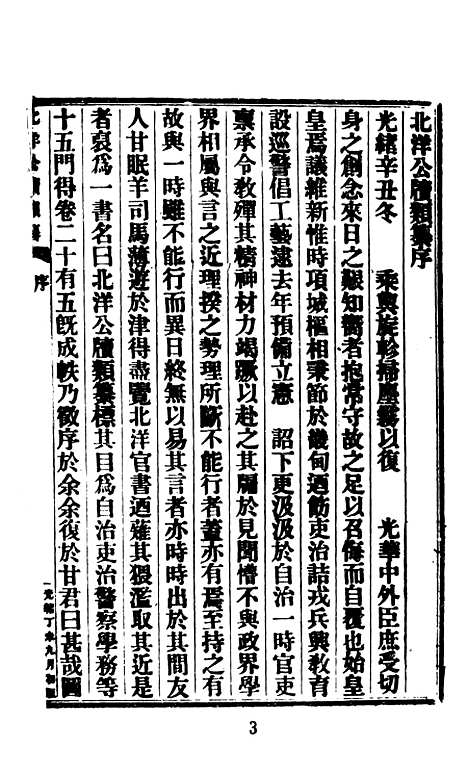 北洋公牘類纂序
光緒辛丑冬　乘輿旋軫掃塵霧以復　光華中外臣庶受切
身之創念來日之艱知嚮者抱常守故之足以召侮而自覆也始皇
皇焉議維新惟時項城樞相秉節於畿甸迺飭吏治詰戎兵興教育
設巡警倡工藝逮去年預備立憲　詔下更汲汲於自治一時官吏
稟承令教殫其精神材力竭蹶以赴之其牖於見聞懵不與政界學
界相屬與言之近理揆之勢理所斷不能行者蓋亦有焉至持之有
故與一時雖不能行而異日終無以易其言者亦時時出於其間友
人甘眠羊司馬薄遊於津得盡覽北洋官書迺薙其猥濫取其近是
者裒爲一書名曰北洋公牘類纂標其目爲自治吏治警察學務等
十五門得卷二十有五旣成帙乃徵序於余余復於甘君曰甚哉圖
北洋公牘類纂　序
光緒丁未九月初版
3